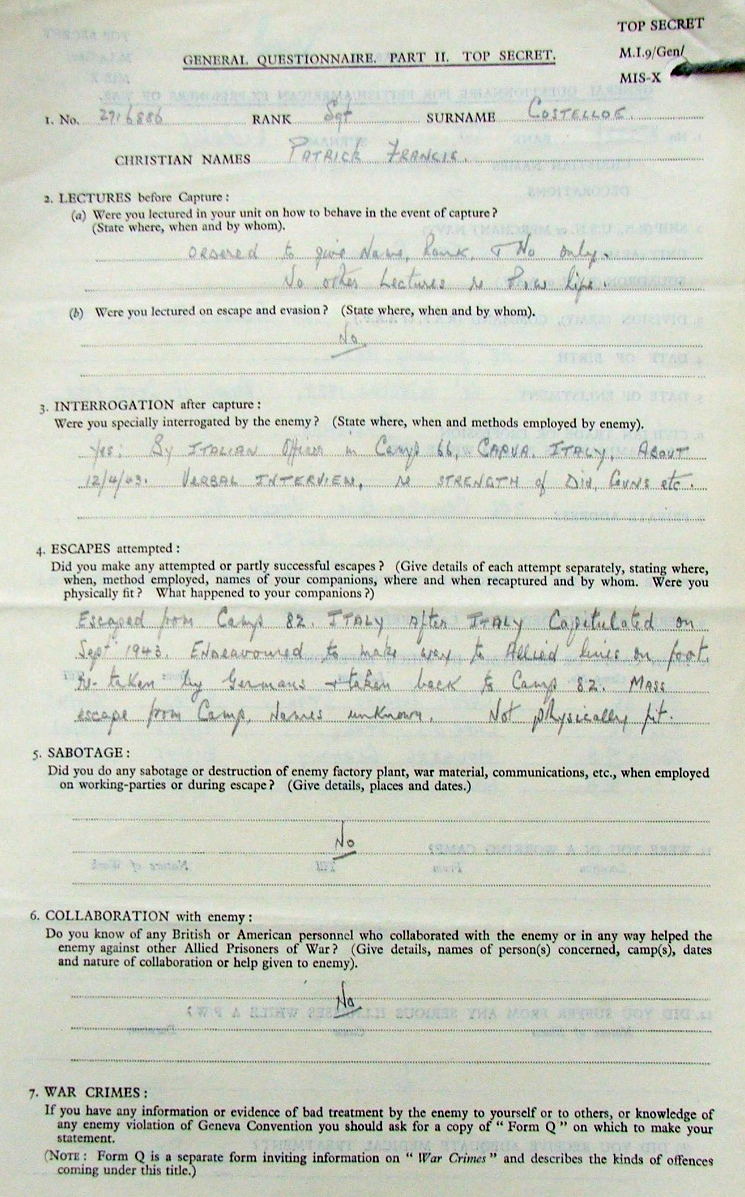 TOP SECRET
GENERAL QUESTIONNAIRE. PART II. TOP SECRET.
M.I.9/Gen/
MIS-X
1. No. 2716886 RANK Sgt SURNAME COSTELLOE.
CHRISTIAN NAMES PATRICK FRANCIS.
2. LECTURES before Capture:
(a) Were you lectured in your unit on how to behave in the event of capture?
(State where, when and by whom).
Ordered to give Name, Rank, & No only.
No other Lectures re P.O.W life.
(b) Were you lectured on escape and evasion? (State where, when and by whom).
No
3. INTERROGATION after capture:
Were you specially interrogated by the enemy? (State where, when and methods employed by enemy).
Yes; By ITALIAN Officer in Camp 66, CAPUA. ITALY, ABOUT
12/4/43. VERBAL INTERVIEW, re STRENGTH of Div, GUNS etc.
4. ESCAPES attempted:
Did you make any attempted or partly successful escapes? (Give details of each attempt separately, stating where,
when, method employed, names of your companions, where and when recaptured and by whom. Were you
physically fit? What happened to your companions?)
Escaped from Camp 82. ITALY AFTER ITALY Capitulated on
Sept 1943. ENDEAVOURED to make way to Allied lines on foot.
Re-taken by Germans & taken back to Camp 82. MASS
escape from Camp, Names unknown. Not physically fit.
5. SABOTAGE:
Did you do any sabotage or destruction of enemy factory plant, war material, communications, etc., when employed
on working-parties or during escape? (Give details, places and dates.)
No
6. COLLABORATION with enemy:
Do you know of any British or American personnel who collaborated with the enemy or in any way helped the
enemy against other Allied Prisoners of War? (Give details, names of person(s) concerned, camp(s), dates
and nature of collaboration or help given to enemy).
No
7. WAR CRIMES:
If you have any information or evidence of bad treatment by the enemy to yourself or to others, or knowledge of
any enemy violation of Geneva Convention you should ask for a copy of "Form Q" on which to make your
statement.
(NOTE: Form Q is a separate form inviting information on "War Crimes" and describes the kinds of offences
coming under this title.)